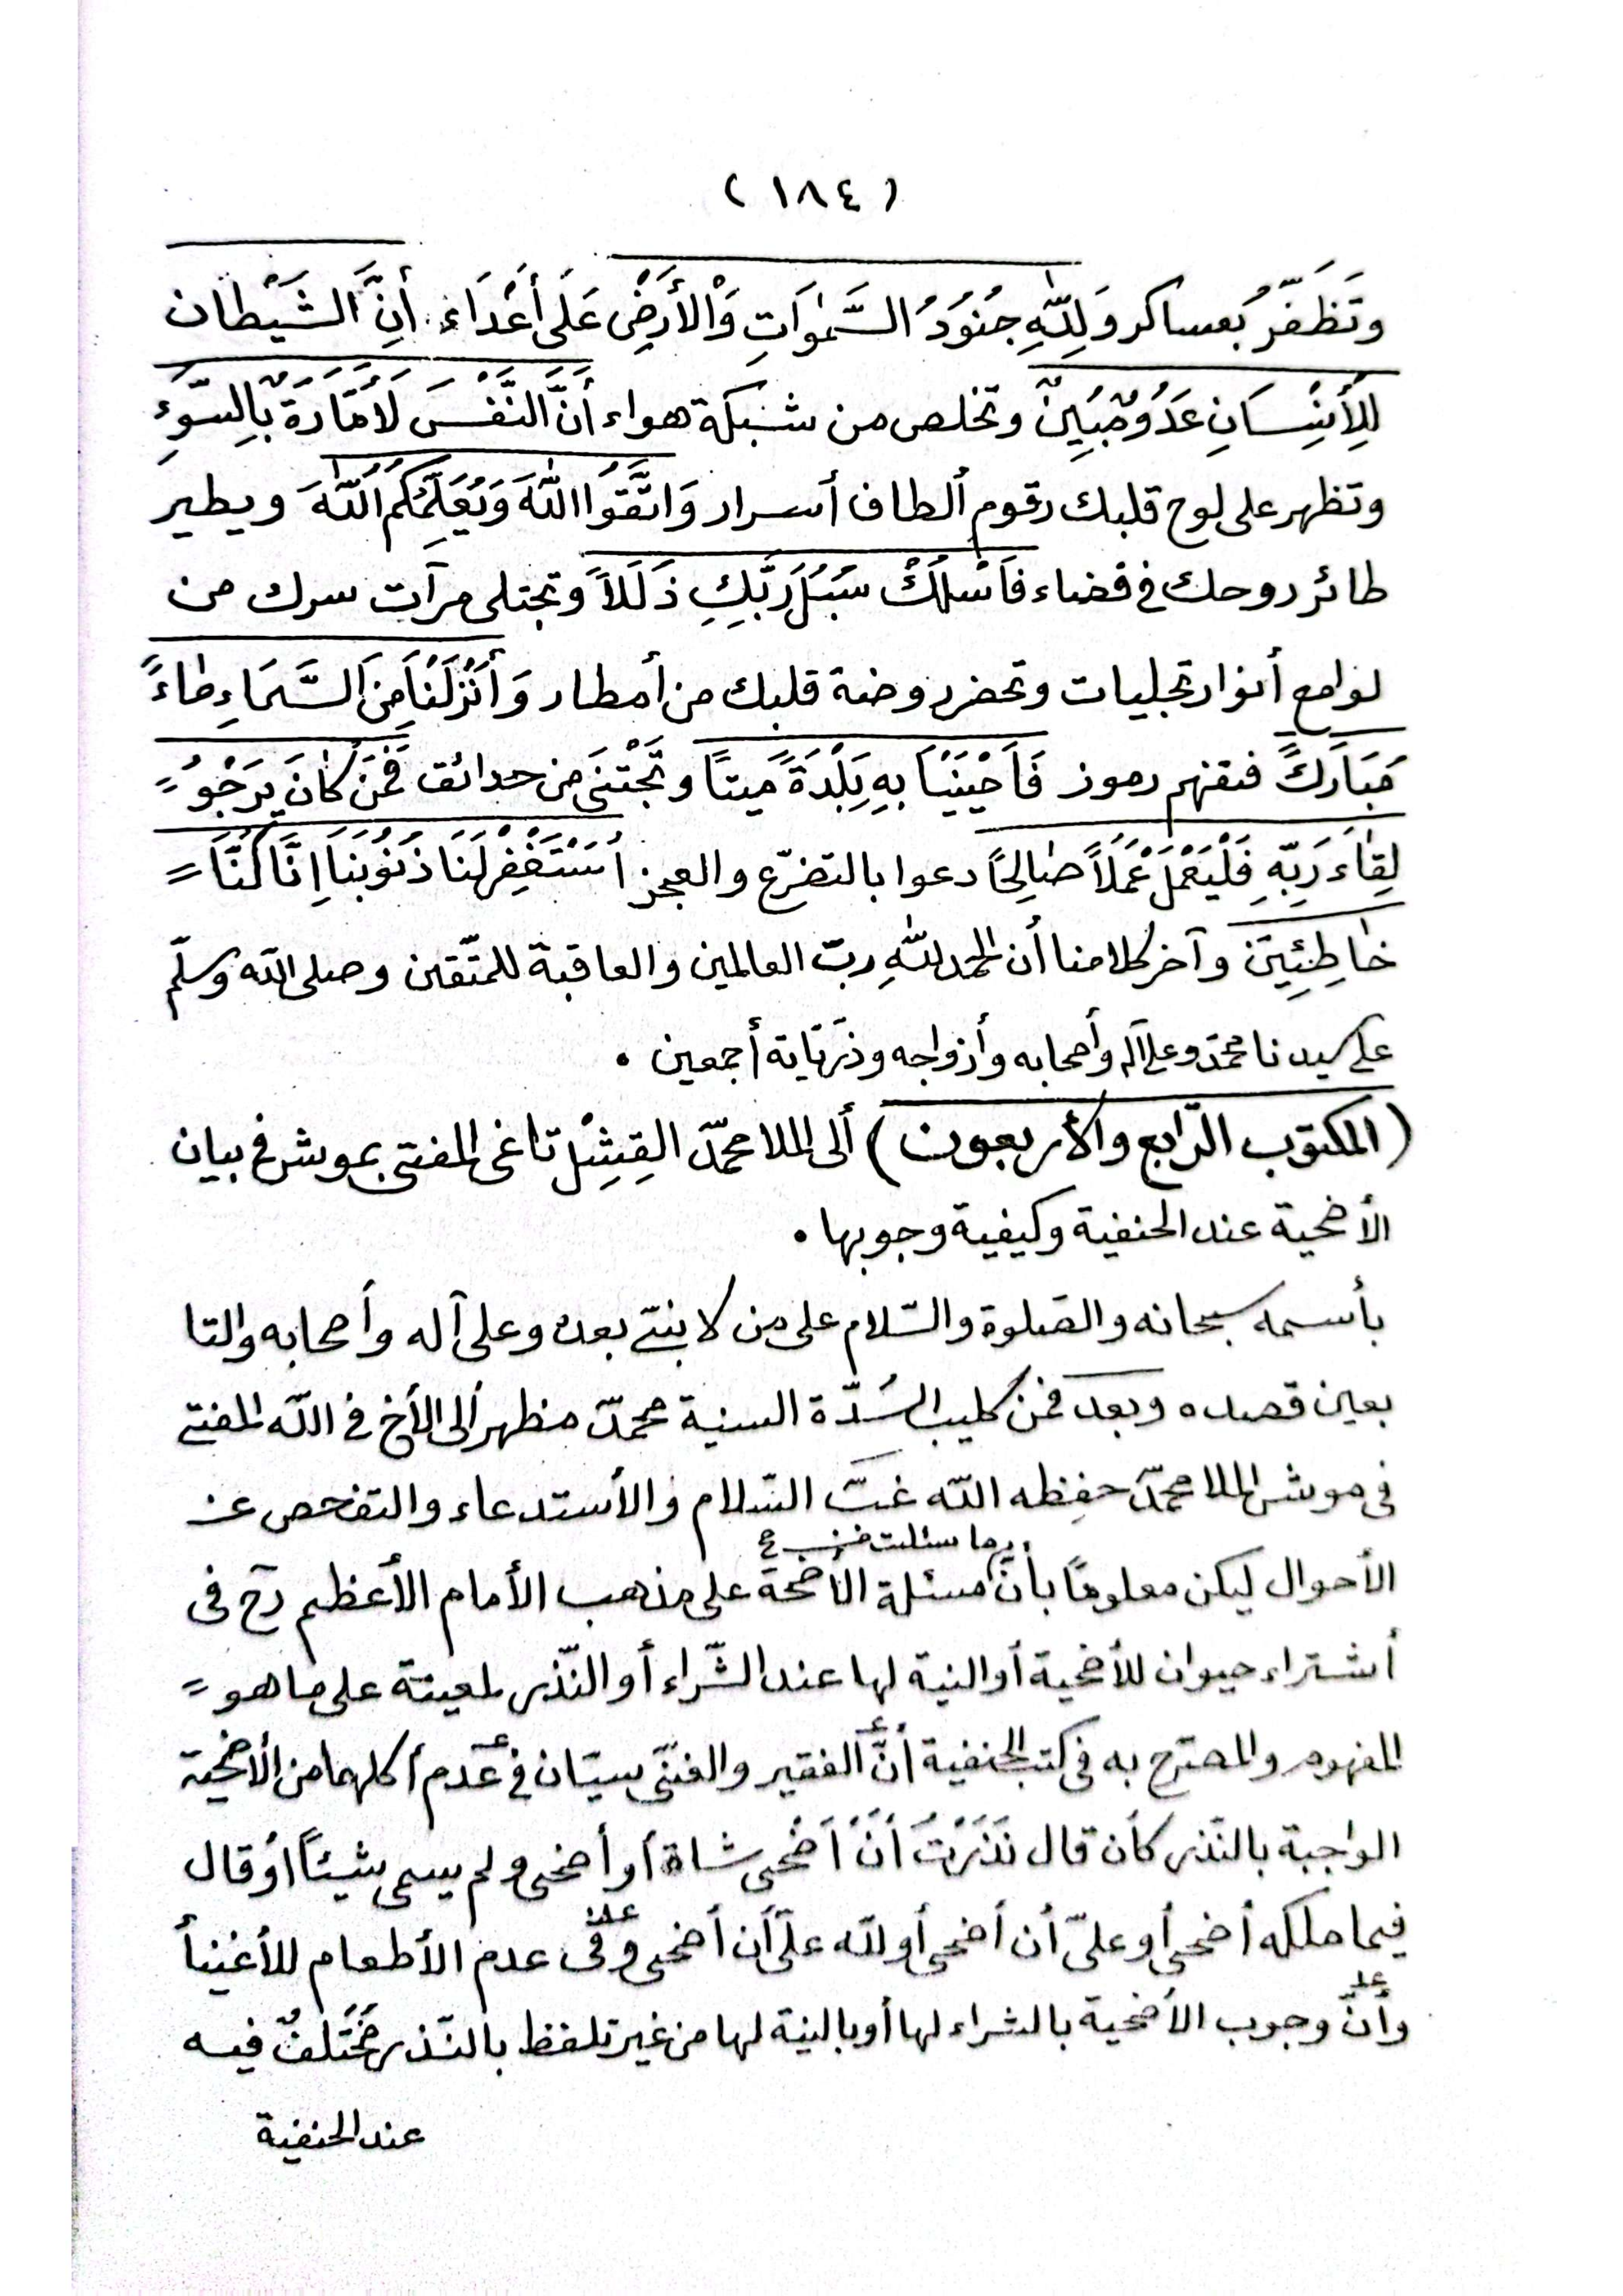 (١٨٤)
وتَظَفَّرُ بعساكر وَلِلّٰهِ جُنُودُ السَّمٰوَاتِ وَالْأَرْضِ عَلَى أَعْدَاءِ أَنَّ الشَّيْطان
لِلْأِنْسَانِ عَدُوٌّ مُبِينٌ وتخلص من شبكة هواء أَنَّ النَّفْسَ لَأَمَّارَةٌ بِالسُّوءِ
وتظهر على لوح قلبك رقوم ألطاف أسرار وَاتَّقُوا اللّٰهَ وَيُعَلِّمُكُمُ اللّٰهُ ويطير
طائر روحك في فضاء فَاسْلُكْ سُبُلَ رَبِّكِ ذُلَلاً وتجتلى مرآت سرك من
لوامع أنوار تجليات وتحضر روضة قلبك من أمطار وَأَنْزَلْنَا مِنَ السَّمَاءِ مٰاءً
مُبَارَكً فتفهم رموز فَاَحْيَيْنَا بِهِ بَلْدَةً مَيتاً وتَجْتَنى من حدائق فَمَنْ كٰانَ يَرْجُو =
لِقٰاءَ رَبِّهِ فَلْيَعْمَلْ عَمَلاً صٰالِحًا دعوا بالتضرّع والعجز اُسْتَغْفِرْ لَنَا ذُنُوبَنَا اِنَّا كُنَّا =
خٰاطِئِينَ وآخر كلامنا أن الحمد للّٰهِ ربّ العالمين والعاقبة للمتّقين وصلى اللّه وسلّم
على سيدنا محمّد وعلى آله وأصحابه وأزواجه وذرّيّاته أجمعين .
(المكتوب الرّابع والأربعون) ألى الملا محمّد القِشِلْتاغى المفتى بموش في بيان
الأضحية عند الحنفية وكيفية وجوبها .
بأسمه سبحانه والصلوة والسّلام على من لا نبىّ بعده وعلى آله وأصحابه والتا
بعين قصده وبعد فمن كليب السُدّة السنية محمّد مظهر ألى الأخ في اللّه المفتى
في موش الملا محمّد حفظه اللّه غبّ السّلام والأستدعاء والتفحص عن
الأحوال ليكن معلومًا بأنّ مسئلة الأضحة على مذهب الأمام الأعظم رح فى
أشتراء حيوان للأضحية أو النية لها عند الشّراء أو النّذر لمعينة على ما هو =
المفهوم والمصرّح به في كتب الحنفية أنّ الفقير والغنىّ سيّان في عدم أكلهما من الأضحية
الواجبة بالنّذر كأن قال نَذَرْتُ أَنْ أَضُحى شاة أو أضحى ولم يسمى شيئاً أو قال
فيما ملكه أضحى أو علىّ أن أضحى أو للّه علىّ أن أضحى وفى عدم الأطعام للأغنيأ
وأنّ وجوب الأضحية بالشراء لها أو بالنية لها من غير تلفظ بالنّذر مُخْتَلَفٌ فيه
عند الحنفية